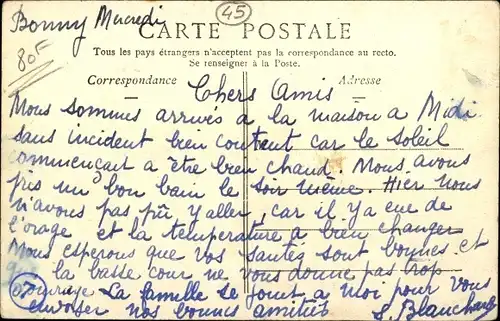 Bonny Mercredi
45
80F
CARTE POSTALE
Tous les pays étrangers n'acceptent pas la correspondance au recto.
Se renseigner à la Poste.
Correspondance
Adresse
Chers Amis
Nous sommes arrivés a la maison a Midi
sans incident bien content car le soleil
commençait a être bien chaud. Nous avons
pris un bon bain le soir même. Hier nous
n'avons pas pû y aller, car il ya eue de
l'orage et la température a bien changer
Nous esperons que vos santés sont bonnes et
la basse cour ne vous donne pas trop
d'ouvrage La famille se joint a moi pour vous
envoiser nos bonnes amitiés
S. Blanchard